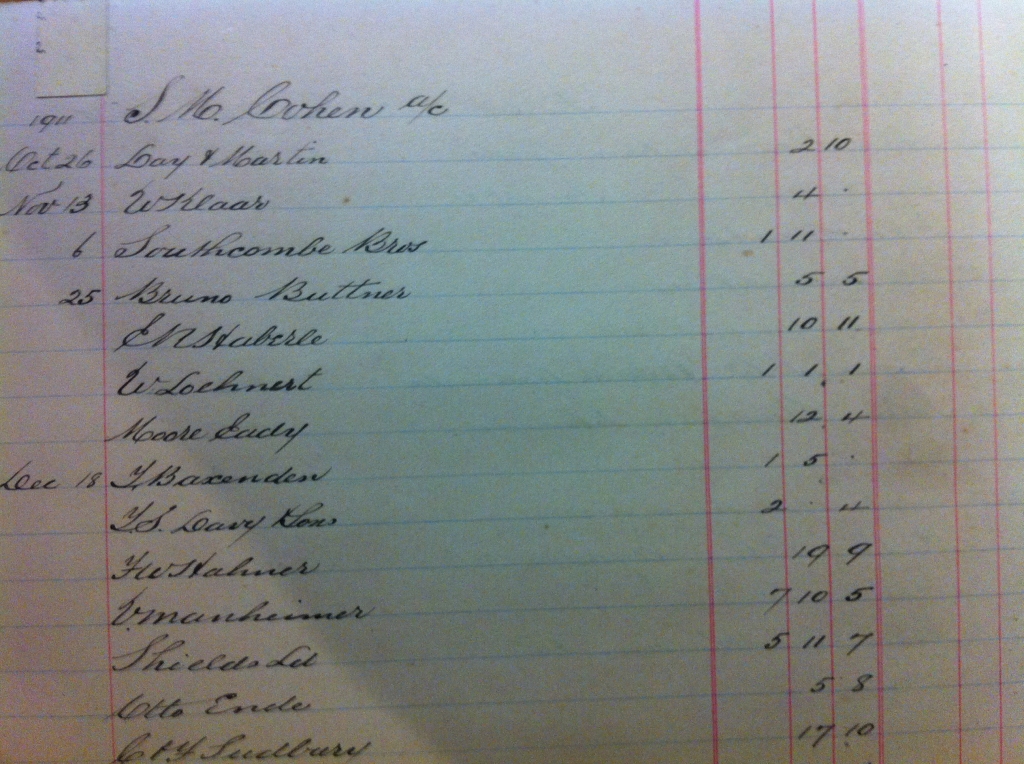 1911 S. M. Cohen a/c
Oct 26 Day & Martin 2 10
Nov 13 W Klaar 4 .
6 Southcombe Bros 1 11 .
25 Bruno Buttner 5 5
E N Haberle 10 11
W Lochnert 1 1 1
Moore Eady 12 4
Dec 18 T Baxenden 1 5 .
T. S. Davy & Sons 2 . 4
F W Hahner 19 9
V. Manheimer 7 10 5
Shields Ltd 5 11 7
Otto Ende 5 8
Sudbury 17 10